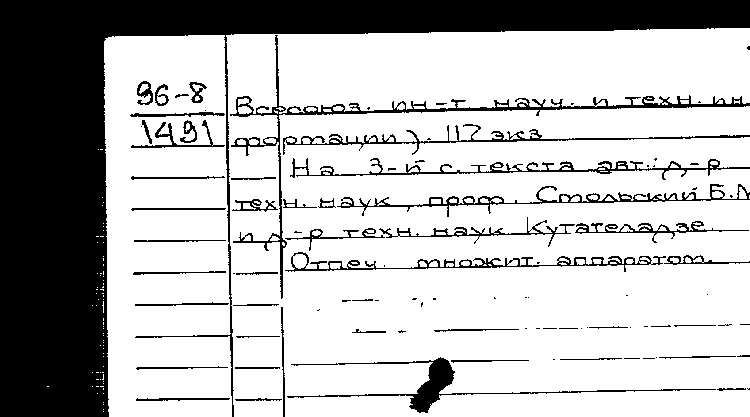 96-8
1491
Всесоюз. ин-т науч. и техн. ин
формации). 117 экз
На 3-й с. текста авт.: д-р
техн. наук, проф. Стольский Б.М
и д-р техн. наук Кутателадзе
Отпеч. множит. аппаратом.